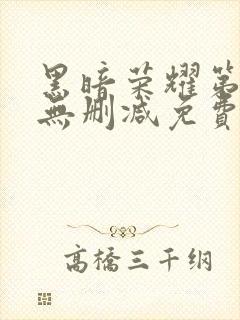 黑暗荣耀第
無删减免費
高橋三千纲